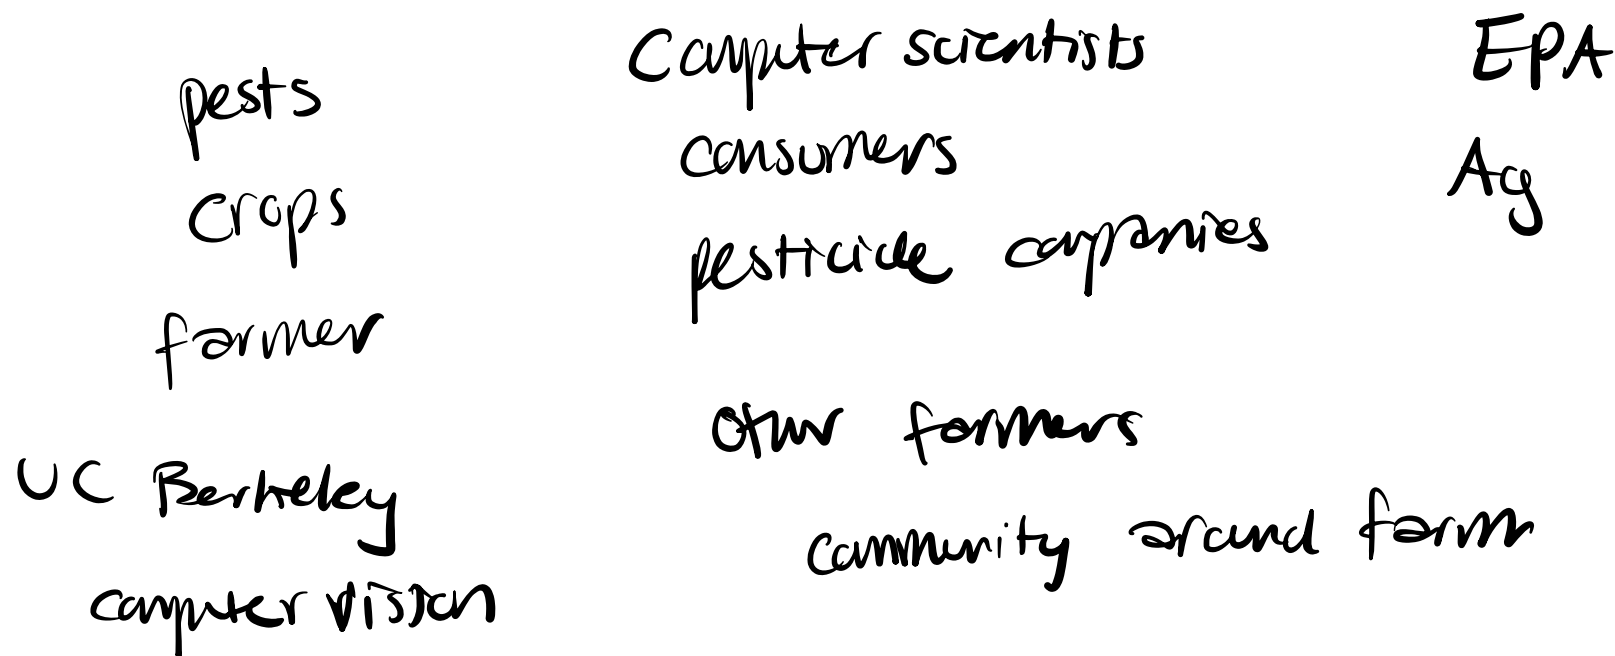 pests
crops
farmer
UC Berkeley
computer vision
Computer scientists
consumers
pesticide companies
other farmers
community around farm
EPA
Ag